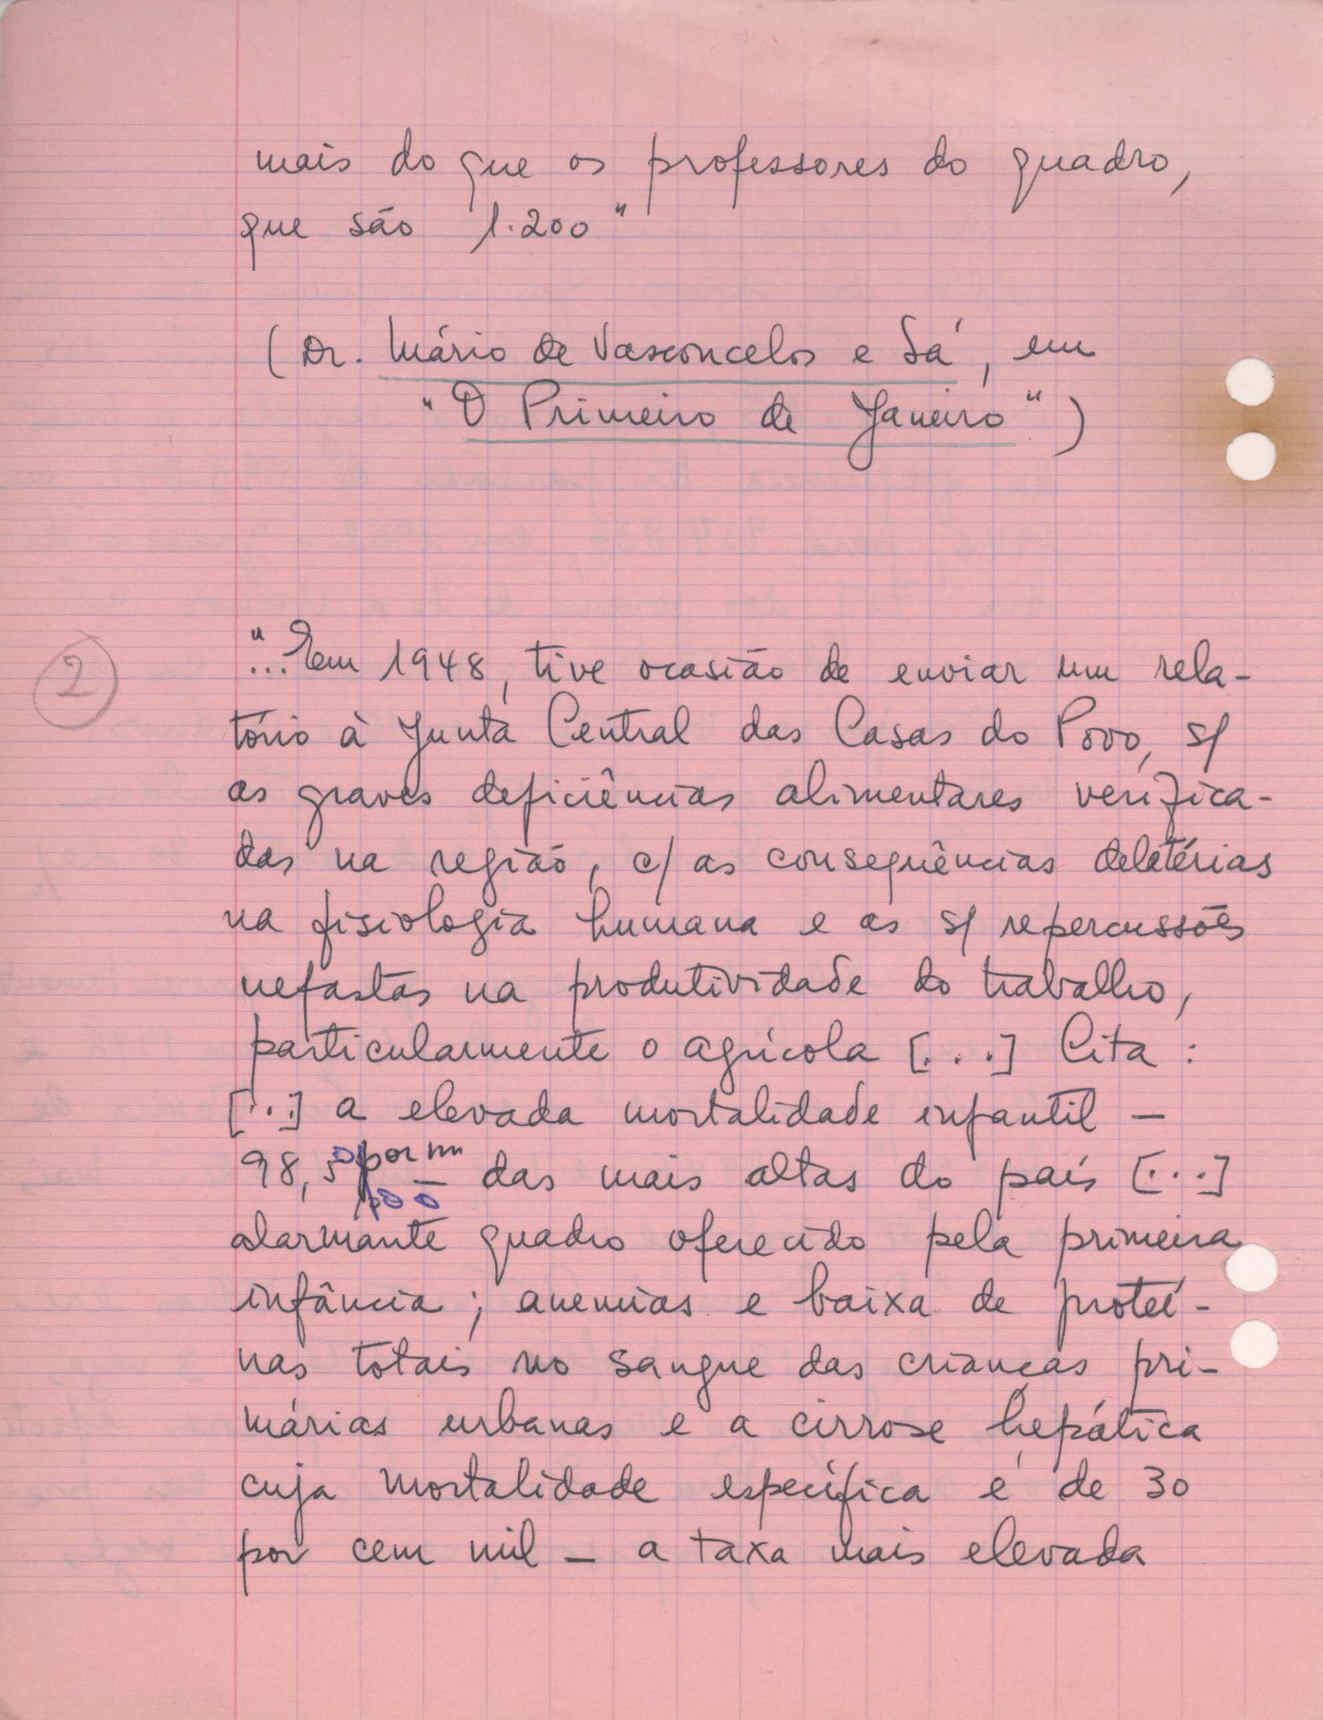 mais do que os professores do quadro,
que são 1.200"
(Dr. Mário de Vasconcelos e Sá, em
"O Primeiro de Janeiro")
2
"...Em 1948, tive ocasião de enviar um rela-
tório à Junta Central das Casas do Povo, s/
as graves deficiências alimentares verifica-
das na região, c/ as consequências deletérias
na fisiologia humana e as s/ repercussões
nefastas na produtividade do trabalho,
particularmente o agrícola [...] Cita:
[...] a elevada mortalidade infantil —
98,5 por — das mais altas do país [...]
alarmante quadro oferecido pela primeira
infância; anemias e baixa de proteí-
nas totais no sangue das crianças pri-
márias urbanas e a cirrose hepática
cuja mortalidade específica é de 30
por cem mil — a taxa mais elevada